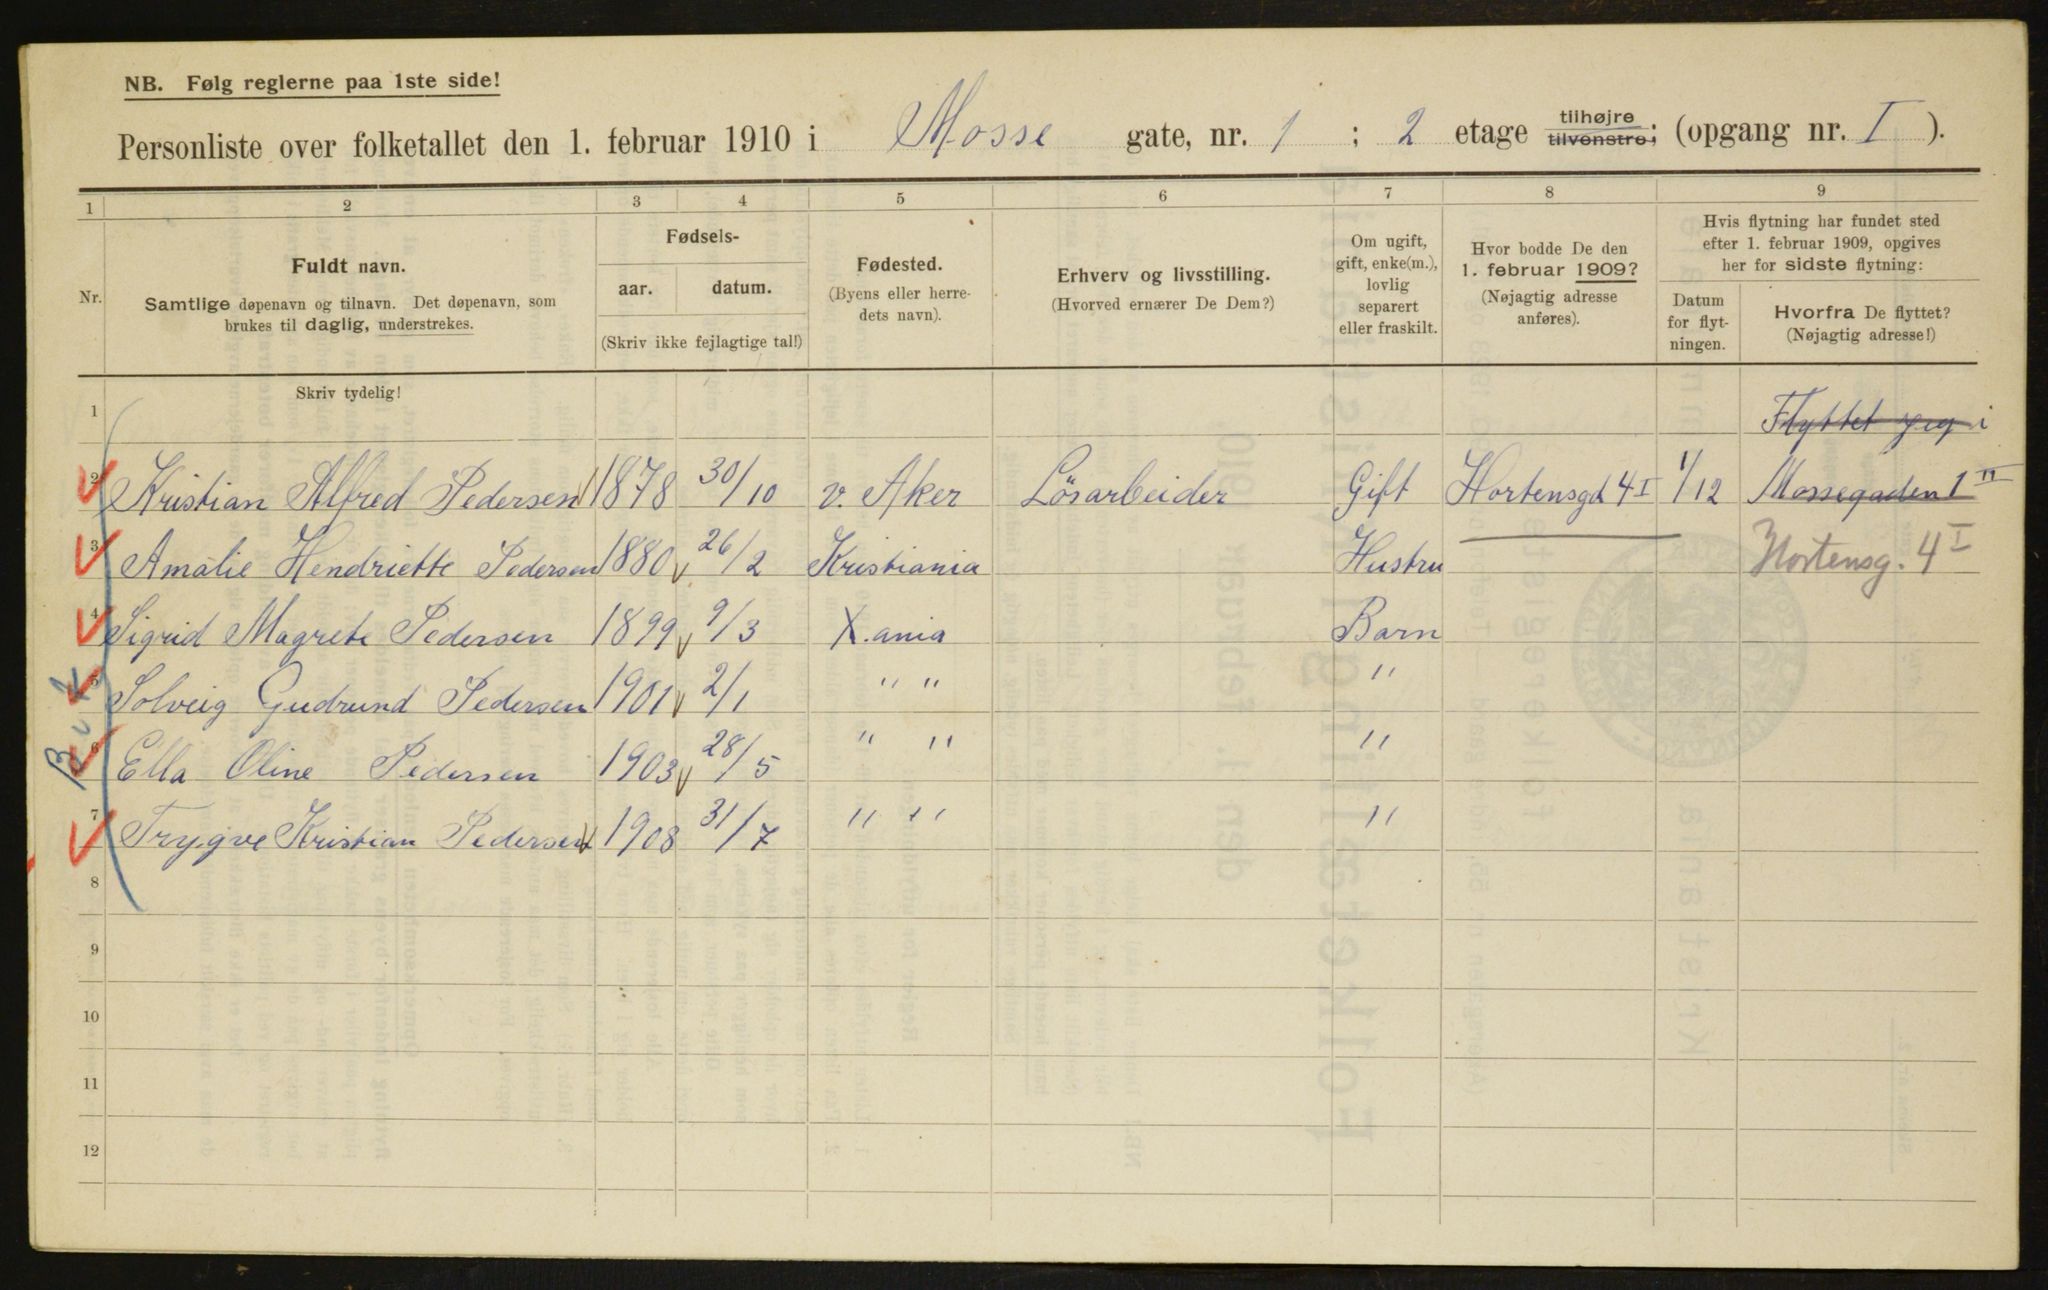 NB. Følg reglerne paa 1ste side!
Personliste over folketallet den 1. februar 1910 i Mosse gate, nr. 1 ; 2 etage tilhøjre tilvenstre; (opgang nr. I ).
1 2 3 4 5 6 7 8 9
Nr.
Fuldt navn.
Samtlige døpenavn og tilnavn. Det døpenavn, som
brukes til daglig, understrekes.
Fødsels-
aar. datum.
(Skriv ikke fejlagtige tal!)
Fødested.
(Byens eller herre-
dets navn).
Erhverv og livsstilling.
(Hvorved ernærer De Dem?)
Om ugift,
gift, enke(m.),
lovlig
separert
eller fraskilt.
Hvor bodde De den
1. februar 1909?
(Nøjagtig adresse
anføres).
Hvis flytning har fundet sted
efter 1. februar 1909, opgives
her for sidste flytning:
Datum
for flyt-
ningen.
Hvorfra De flyttet?
(Nøjagtig adresse!)
Skriv tydelig!
1 Flyttet jeg i
2 Kristian Alfred Pedersen 1878 30/10 v. Aker Lösarbeider Gift Hortensgd 4 I 1/12 Mossegaden 1 II
3 Amalie Hendriette Pedersen 1880 26/2 Kristiania Hustru Hortensg. 4 I
4 Sigrid Magrete Pedersen 1899 9/3 X.ania Barn
5 Solveig Gudrund Pedersen 1901 2/1 " " "
6 Ella Oline Pedersen 1903 28/5 " " "
7 Trygve Kristian Pedersen 1908 31/7 " " "
8
9
10
11
12